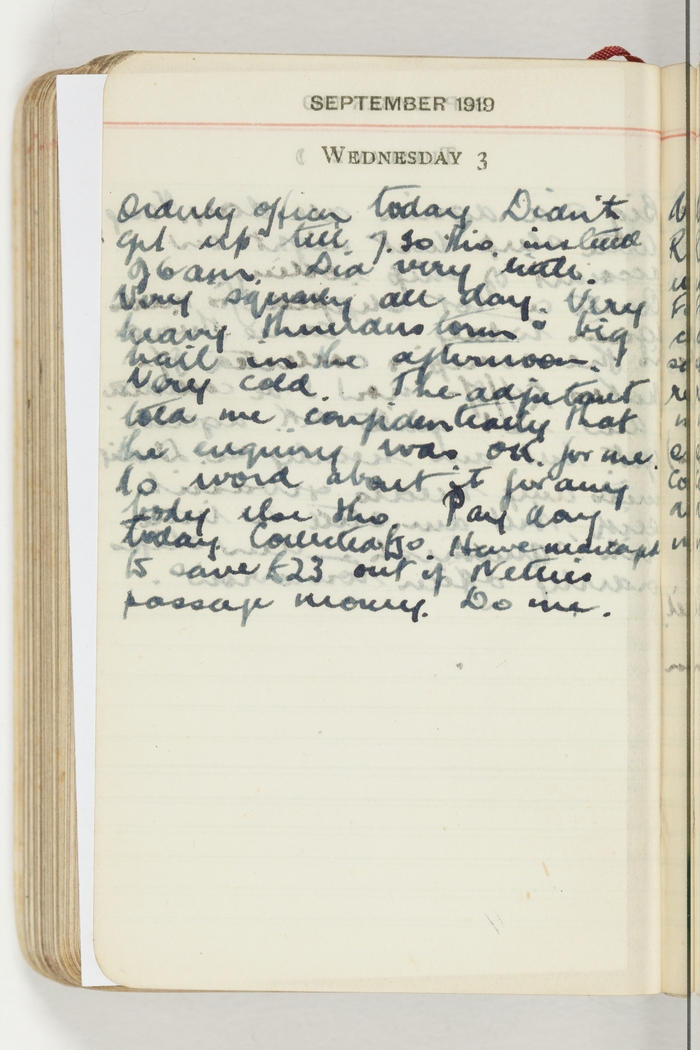 SEPTEMBER 1919
WEDNESDAY 3
Orderly officer today Didn't
get up till 7.30 tho. instead
of 6 am. Did very little.
Very squally all day. Very
heavy thunderstorm & big
hail in the afternoon.
Very cold. The adjutant
told me confidentially that
the enquiry was OK. for me.
No word about it for any
body else tho. Pay day
today. Collected Have
to save £23 out of Netties
passage money. Do me.